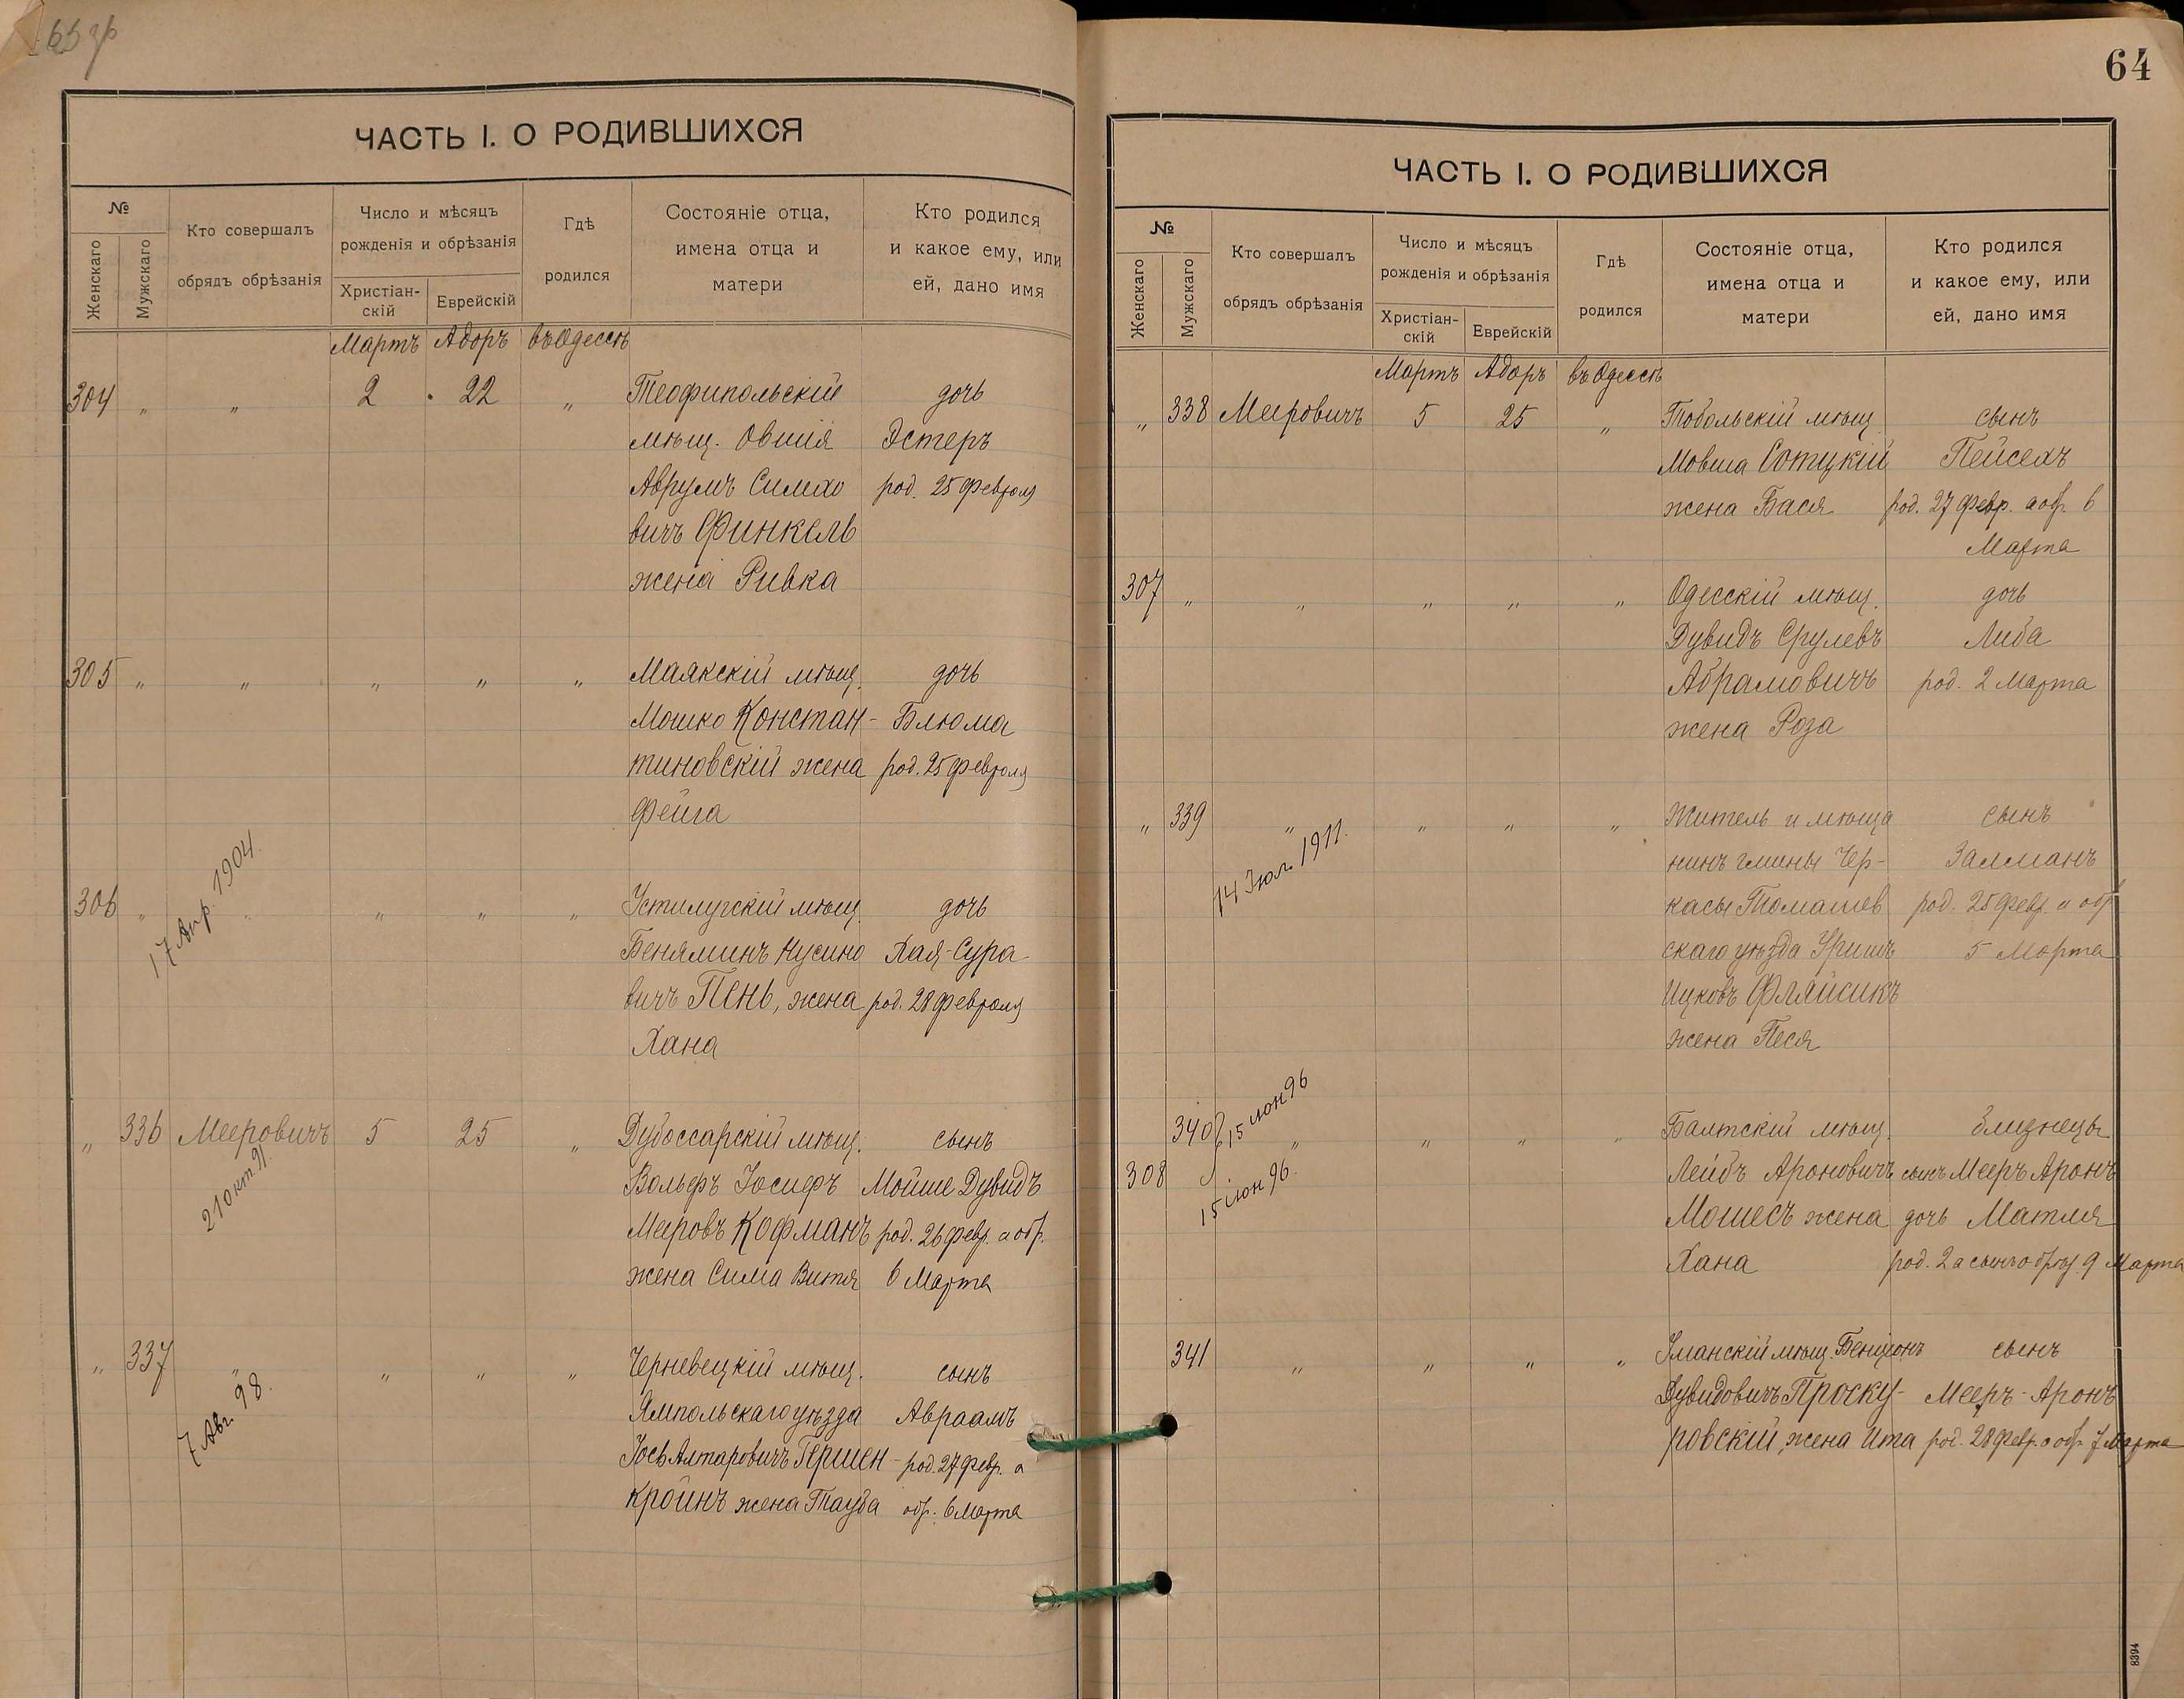 ЧАСТЬ I. О РОДИВШИХСЯ
№
Женскаго
Мужскаго
Кто совершалъ
обрядъ обрѣзанія
Число и мѣсяцъ
рожденія и обрѣзанія
Христіан-
скій
Еврейскій
Гдѣ
родился
Состояніе отца,
имена отца и
матери
Кто родился
и какое ему, или
ей, дано имя
Мартъ Адоръ въ Одессѣ
304 " " 2 22 " Теофипольскій дочь
мѣщ. Овшія Эстеръ
Аврумъ Симхо род. 25 февраля
вичъ Финкель
жена Ривка
305 " " " " " Маякскій мѣщ. дочь
Мошко Констан- Блюма
тиновскій жена род. 25 февраля
Фейга
17 Апр. 1904.
306 " " " " " Устилугскій мѣщ. дочь
Беняминъ Нусино Хая-Сура
вичъ Пень, жена род. 28 февраля
Хана
" 336 Мееровичъ 5 25 " Дубоссарскій мѣщ. сынъ
21 окт. 91.
Вольфъ Іосифъ Мойше Дувидъ
Мееровъ Кофманъ род. 26 февр. а обр.
жена Сима Витя 6 Марта
" 337 " " " " Черневецкій мѣщ. сынъ
7 Авг. 98.
Ямпольскаго уѣзда Авраамъ
Іось Алтаровичъ Гершен- род. 27 февр. а
кройнъ жена Тауба обр. 6 Марта
64
ЧАСТЬ I. О РОДИВШИХСЯ
№
Женскаго
Мужскаго
Кто совершалъ
обрядъ обрѣзанія
Число и мѣсяцъ
рожденія и обрѣзанія
Христіан-
скій
Еврейскій
Гдѣ
родился
Состояніе отца,
имена отца и
матери
Кто родился
и какое ему, или
ей, дано имя
Мартъ Адоръ въ Одессѣ
" 338 Мееровичъ 5 25 " Тобольскій мѣщ. сынъ
Мовша Сотцкій Пейсехъ
жена Бася род. 27 февр. а обр. 6
Марта
307 " " " " " Одесскій мѣщ. дочь
Дувидъ Срулевъ Либа
Абрамовичъ род. 2 Марта
жена Роза
" 339 " " " " Житель и мѣща сынъ
14 Іюл. 1911.
нинъ гмины Чер- Залманъ
касы Томашев род. 25 февр. а обр
скаго уѣзда Уришъ 5 Марта
Ицковъ Фляйсикъ
жена Песя
340 15 іюн 96 " " " " Балтскій мѣщ. близнецы
308 15 іюн 96. Лейбъ Ароновичъ сынъ Мееръ Аронъ
Мошесъ жена дочь Матля
Хана род. 2 а сынъ обрѣз 9 Марта
341 " " " " Уманскій мѣщ. Бенціонъ сынъ
Дувидовичъ Проску- Мееръ-Аронъ
ровскій, жена Ита род. 28 февр. а обр. 7 Марта
8394